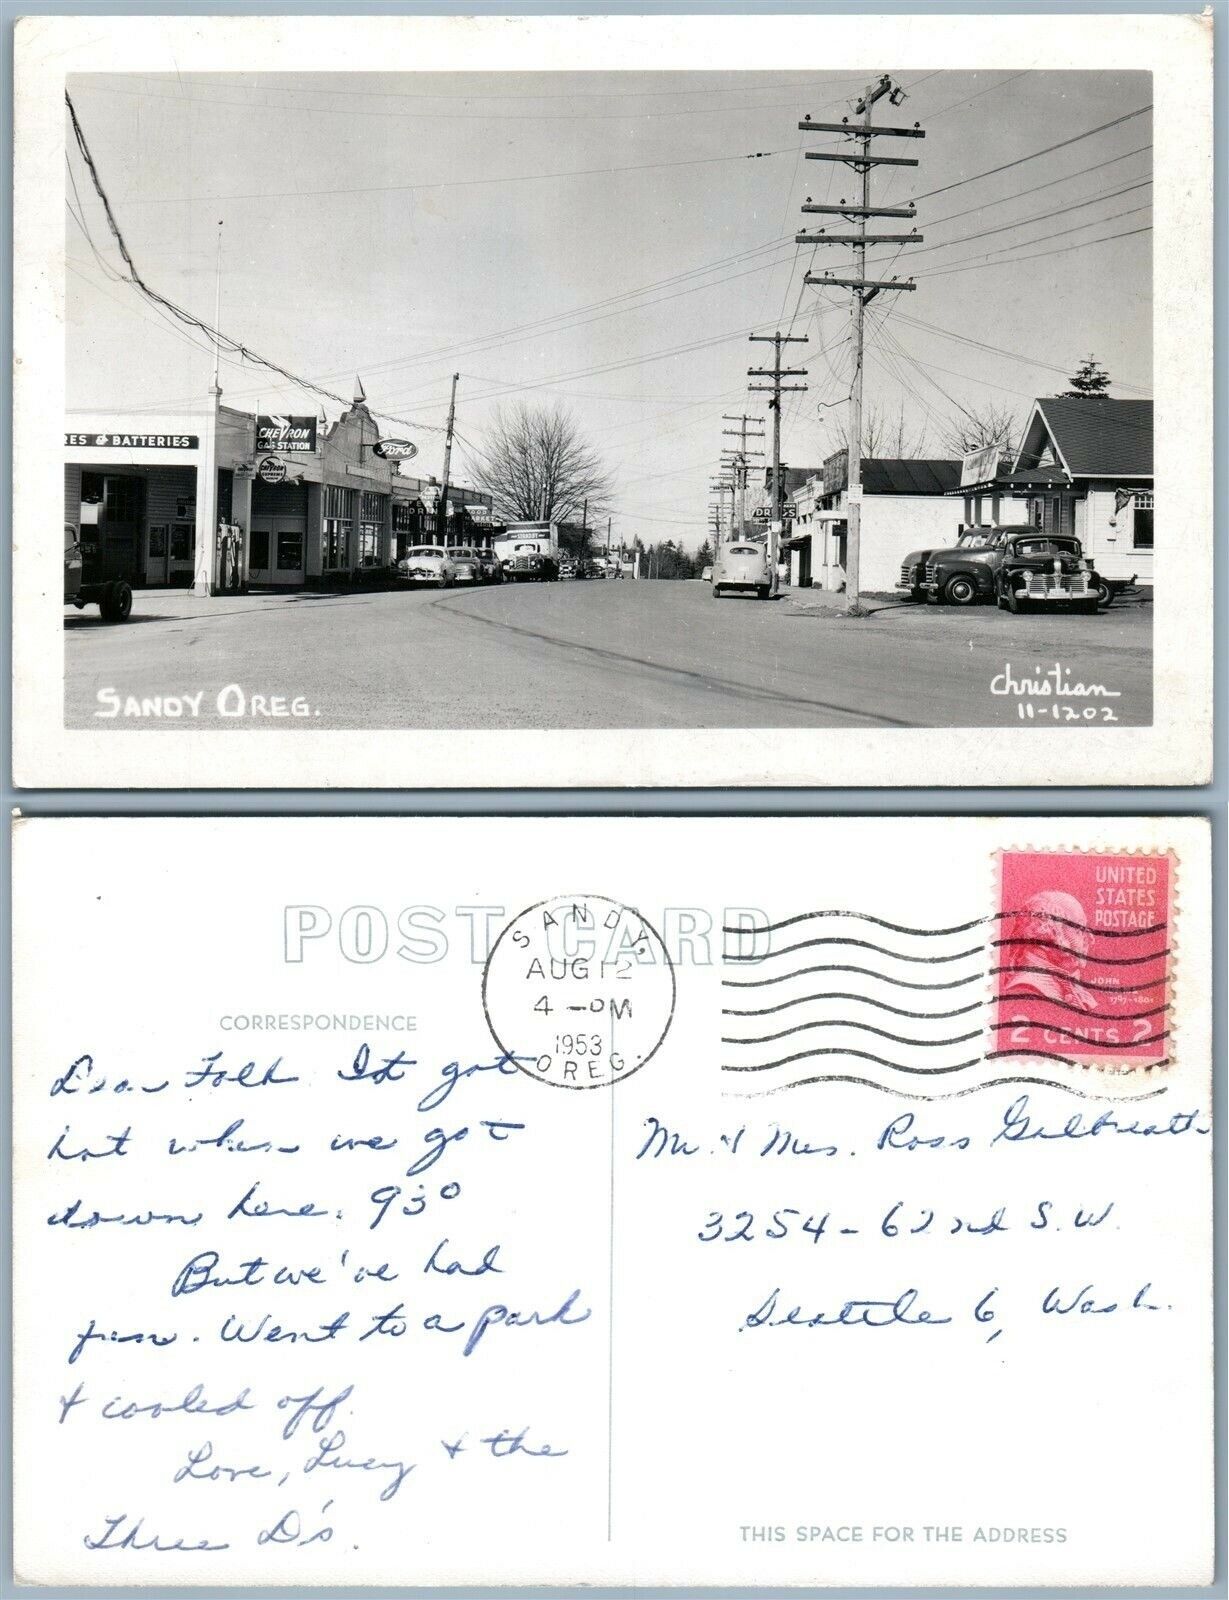 RES & BATTERIES
CHEVRON
GAS STATION
CHEVRON
SUPREME
Ford
DRUGS
SANDY OREG.
Christian
11-1202
POST CARD
SANDY,
AUG 12
4 - PM
1953
OREG.
UNITED
STATES
POSTAGE
JOHN
2 CENTS 2
CORRESPONDENCE
Dear Folk It got
hot when we got
down here. 93°
But we've had
fun. Went to a park
& cooled off.
Love, Lucy & the
Three D's.
Mr. & Mrs. Ross Galbreath
3254 - 62nd S.W.
Seattle 6, Wash.
THIS SPACE FOR THE ADDRESS